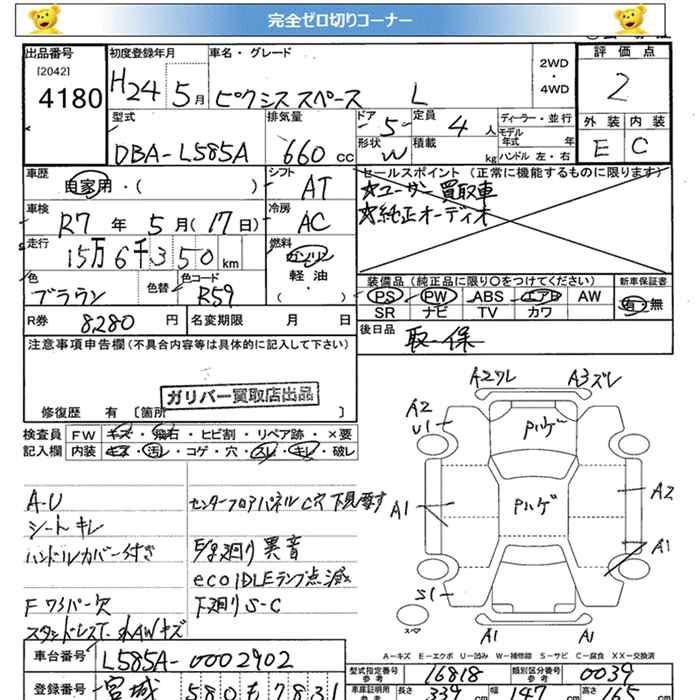 完全ゼロ切りコーナー
出品番号
[2042]
4180
初度登録年月
H24 5月
車名・グレード
ピクシス スペース L
2WD
・
4WD
評価点
2
外装 内装
E C
型式
DBA-L585A
排気量
660 cc
ドア
5
定員
4 人
形状
W
積載
kg
ディーラー・並行
モデル年式 年
ハンドル 左・右
車歴
自家用・( )
シフト
AT
セールスポイント (正常に機能するものに限ります)
☆ユーザー買取車
☆純正オーディオ
車検
R7 年 5 月 (17 日)
冷房
AC
走行
15万6千350 km
燃料
ガソリン
軽油
( ・ )
色
ブラウン
色替
色コード
R59
装備品 (純正品に限り○をつけてください)
新車保証書
PS PW ABS エアB AW
SR ナビ TV カワ
有・無
R券
8280 円
名変期限 月 日
後日品
取・保
注意事項申告欄 (不具合内容等は具体的に記入して下さい)
ガリバー買取店出品
修復歴 有 〔箇所 〕
検査員記入欄
FW キズ・飛石・ヒビ割・リペア跡・×要
内装 キズ・汚レ・コゲ・穴・スレ・キレ・破レ
A-U
シートキレ
ハンドルカバー付き
F ワイパー欠
センターフロアパネル C穴 下見要す
異音
eco IDLEランプ点滅
下廻り S-C
A2ワレ
A3ズレ
A2
U1
Pハゲ
Pハゲ
A1
A2
A1
S1
スペア
A1
A1
A-キズ E-エクボ U-凹み W-補修跡 S-サビ C-腐食 XX-交換済
車台番号
L585A-0002902
型式指定番号 参考
16818
類別区分番号 参考
0039
登録番号
宮城 580 も 7831
車庫証明用 参考
長さ 339 cm
幅 147 cm
高さ 165 cm